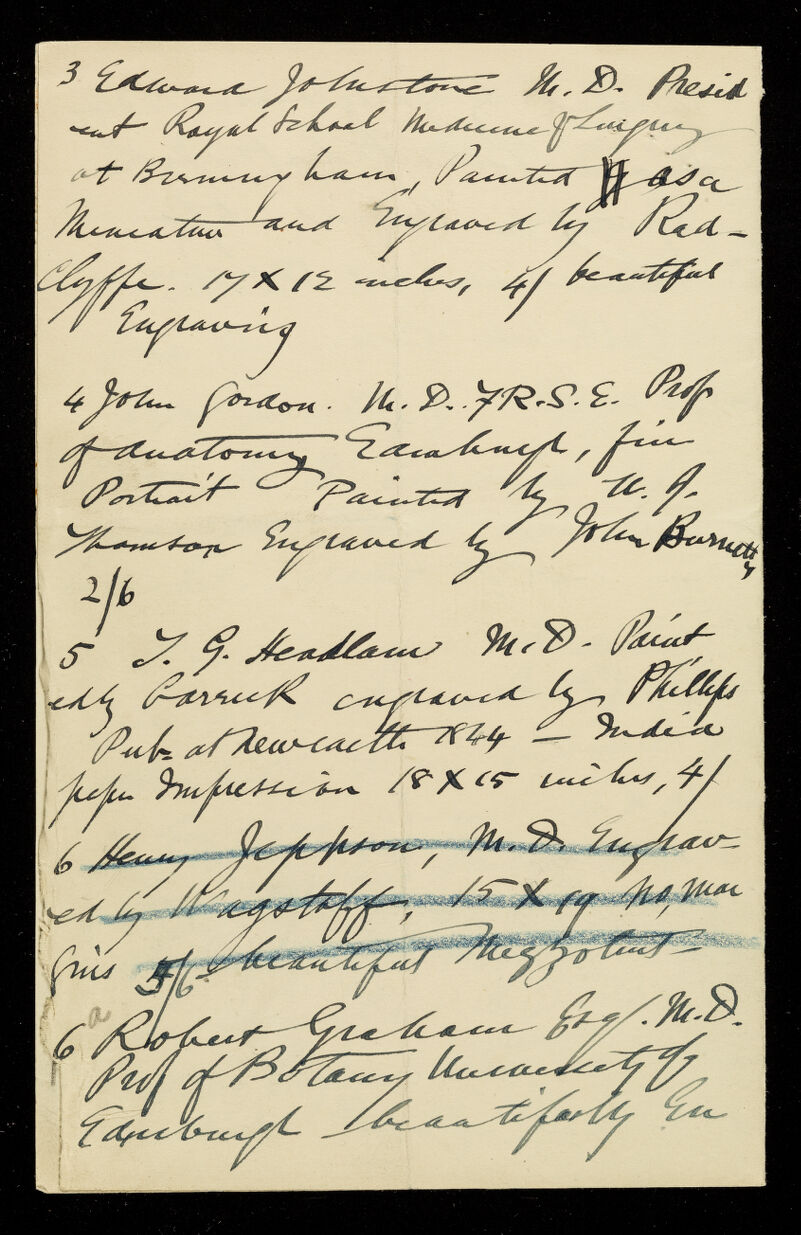 3 Edward Johnstone M. D. Presid
ent Royal School Medicine & Surgery
at Birmingham, Painted as a
Miniature and Engraved by Rad-
Clyffe. 17 X 12 inches, 4/ beautiful
Engraving
4 John Gordon. M. D. F.R.S.E. Prof
of Anatomy Edinburgh, fine
Portrait Painted by W. J.
Thomson Engraved by John Burnett
2/6
5 T. G. Headlam M.D. Paint
ed by Carrick engraved by Phillips
Pub= at Newcastle 1844 – India
paper Impression 18 X 15 inches, 4/
6 Henry Jephson, M.D. Engrav-
ed by Wagstaff, 15 X 19 no, mar
gins 5/6 beautiful Mezzotint
6 a Robert Graham Esq/. M.D.
Prof of Botany University of
Edinburgh beautifully En